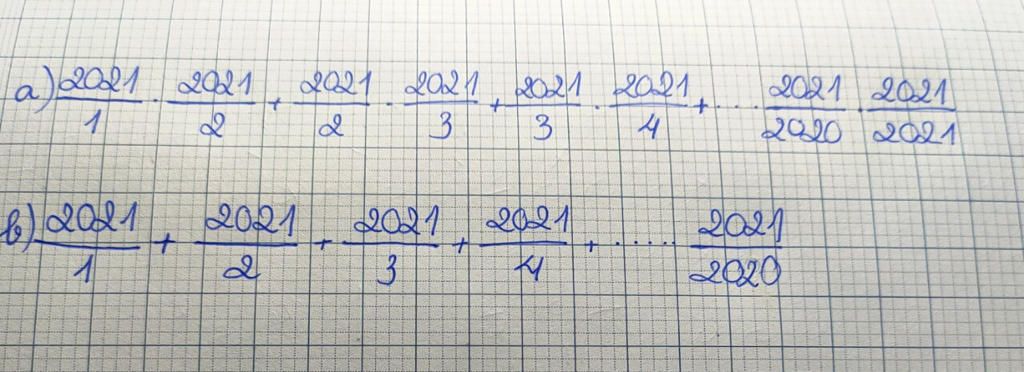 a) 2021/1 · 2021/2 + 2021/2 · 2021/3 + 2021/3 · 2021/4 + ... 2021/2020 · 2021/2021
b) 2021/1 + 2021/2 + 2021/3 + 2021/4 + ..... 2021/2020